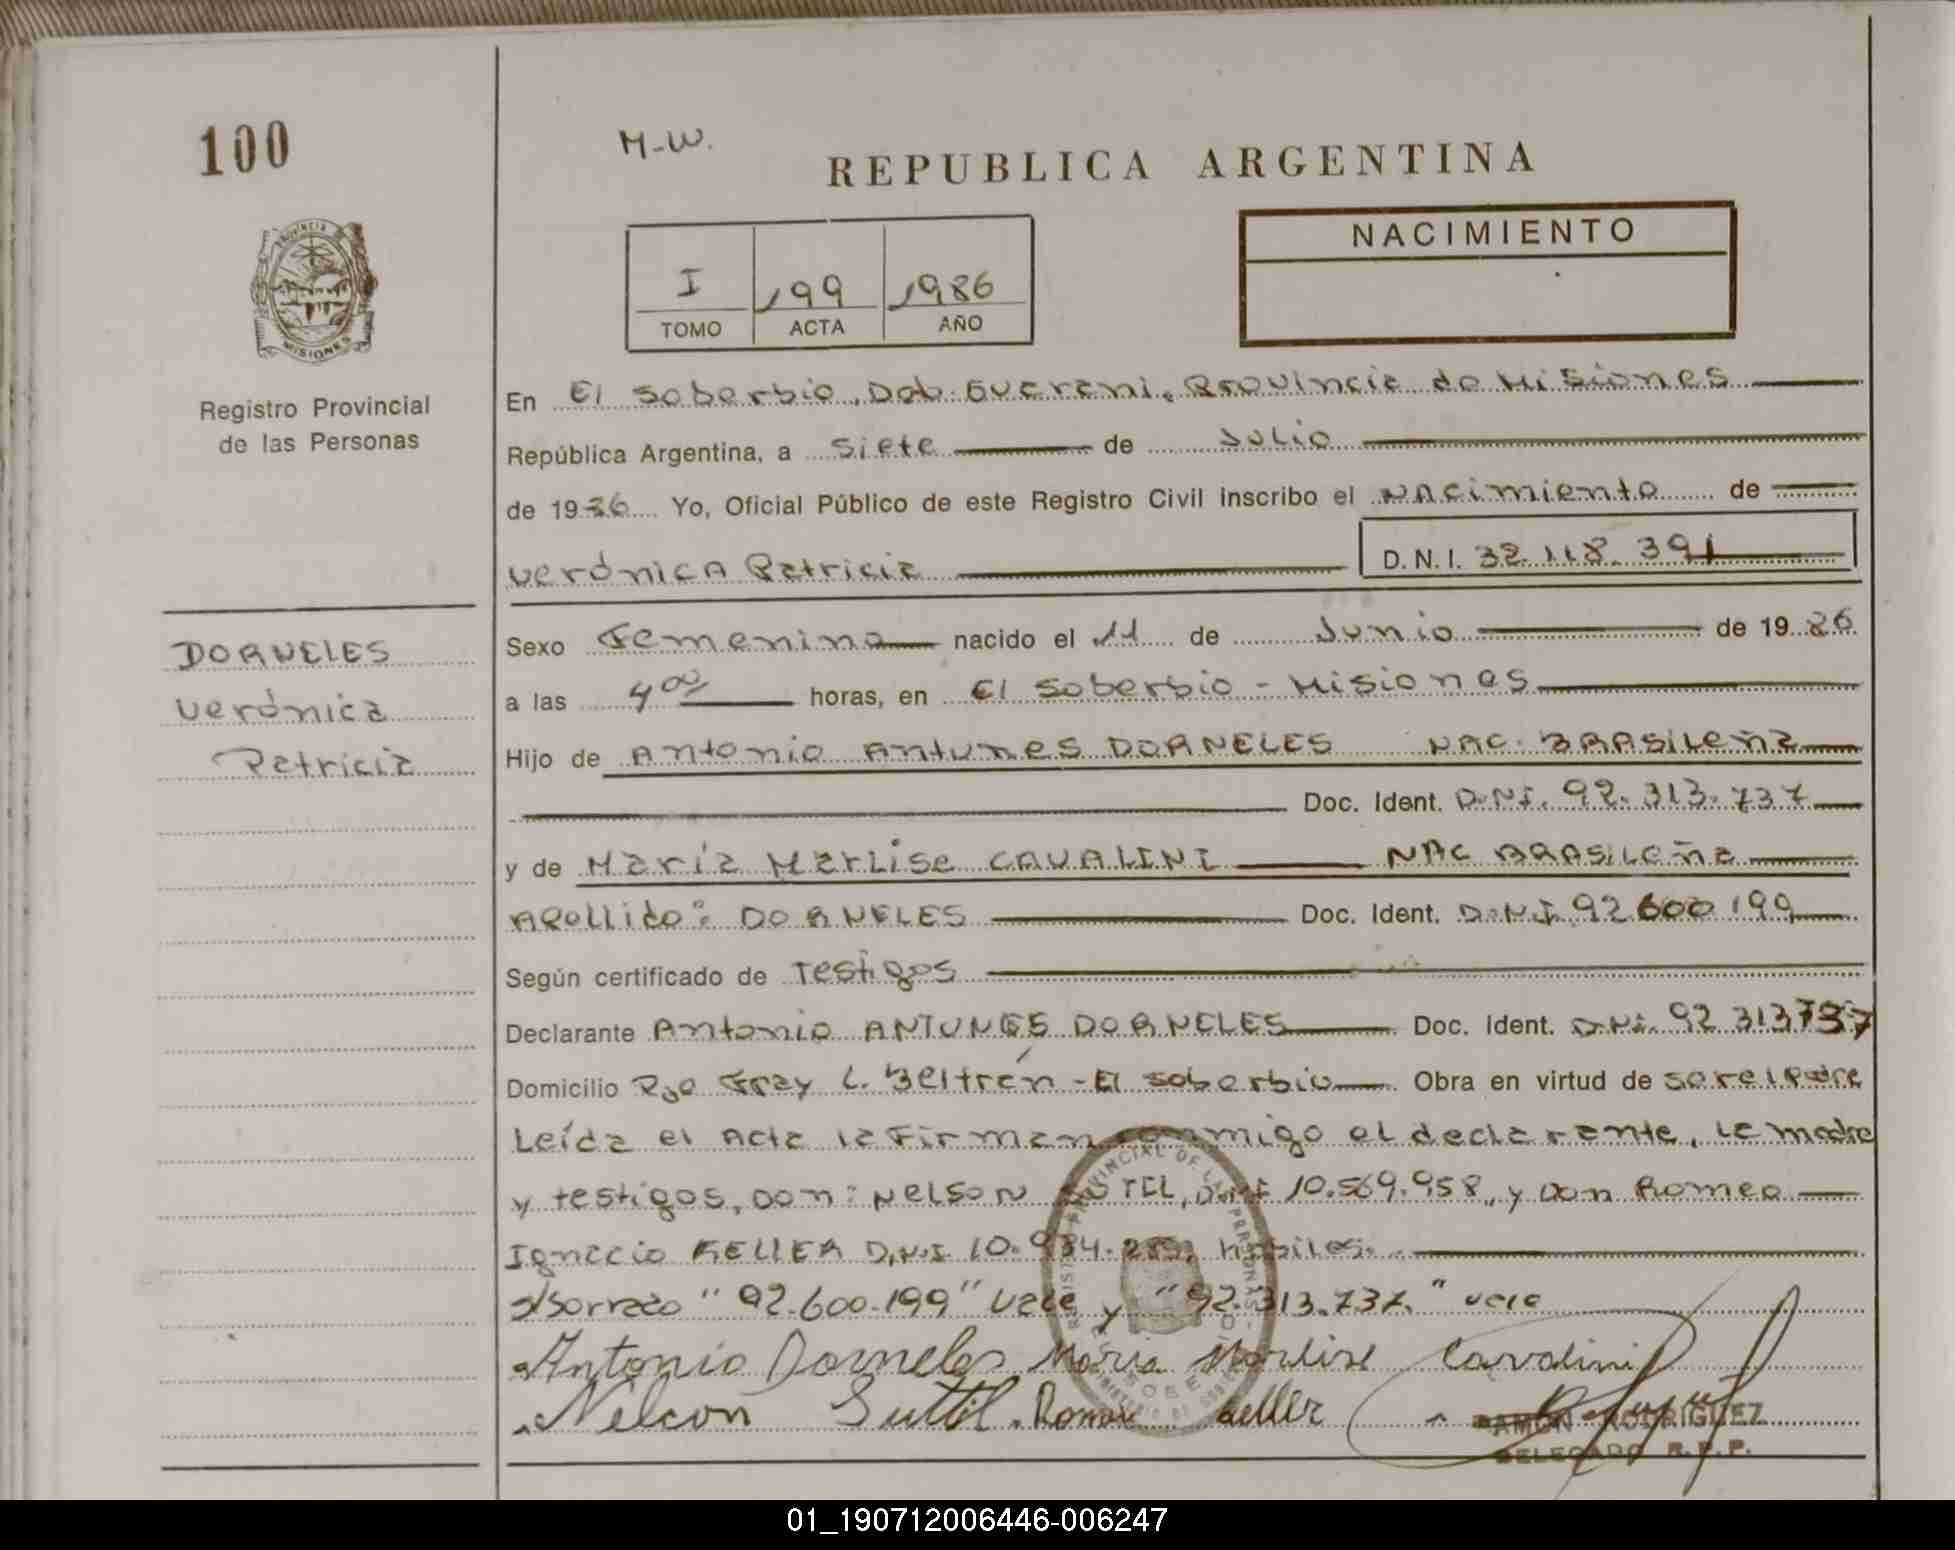 100
M-W.
REPUBLICA ARGENTINA
PROVINCIA
MISIONES
Registro Provincial
de las Personas
I 199 1986
TOMO ACTA AÑO
NACIMIENTO
En El Soberbio, Dpto. Guarani, Provincia de Misiones
República Argentina, a siete de Julio
de 1986 Yo, Oficial Público de este Registro Civil inscribo el Nacimiento de
Verónica Patricia D.N.I. 32.118.391
DORNELES
Verónica
Patricia
Sexo Femenino nacido el 11 de Junio de 1986
a las 4 00 horas, en El Soberbio - Misiones
Hijo de Antonio Antunes DORNELES NAC. BRASileña
Doc. Ident. D.N.I. 92.313.737
y de María Marlise CAVALINI NAC BRASileña
Apellido: DORNELES Doc. Ident. D.N.I. 92 600 199
Según certificado de Testigos
Declarante Antonio ANTUNES DORNELES Doc. Ident. D.N.I. 92 313737
Domicilio Pje Fray L. Beltrán - El Soberbio Obra en virtud de ser el padre
Leída el Acta la Firman conmigo el declarante, la madre
y testigos, Don: Nelson SUTEL, D.N.I 10.569.958, y Don Romeo
Ignacio KELLER D.N.I. 10.984. habiles.
s/borrado "92.600.199" Vale y "92.313.737." vale
Antonio Dorneles Maria Marlise Cavalini
Nelson Suttil. Romeo Keller
RAMON RODRIGUEZ
DELEGADO R.P.P.
01_190712006446-006247